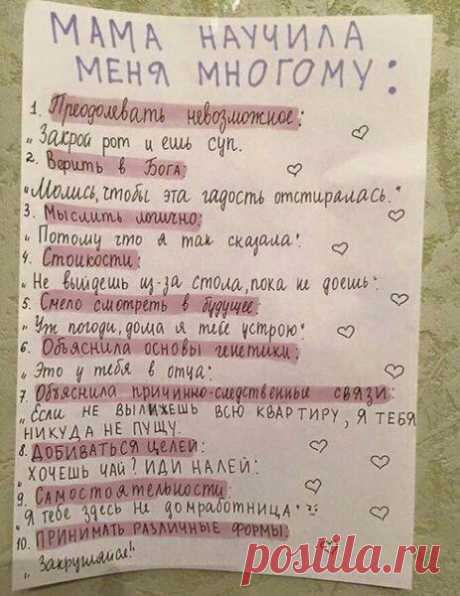 МАМА НАУЧИЛА
МЕНЯ МНОГОМУ:
1. Преодолевать невозможное:
„Закрой рот и ешь суп.
2. Верить в Бога:
„Молись, чтобы эта гадость отстиралась."
3. Мыслить логично:
„Потому что я так сказала".
4. Стойкости:
„Не выйдешь из-за стола, пока не доешь".
5. Смело смотреть в будущее:
„Уж погоди, дома я тебе устрою".
6. Объяснила основы генетики:
„Это у тебя в отца".
7. Объяснила причинно-следственные связи:
„ЕСЛИ НЕ ВЫЛИЖЕШЬ ВСЮ КВАРТИРУ, Я ТЕБЯ
НИКУДА НЕ ПУЩУ.
8. ДОБИВАТЬСЯ ЦЕЛЕЙ:
„ХОЧЕШЬ ЧАЙ? ИДИ НАЛЕЙ".
9. Самостоятельности:
„Я тебе здесь не домработница"
10. ПРИНИМАТЬ РАЗЛИЧНЫЕ ФОРМЫ:
„Закруглялся!"
postila.ru